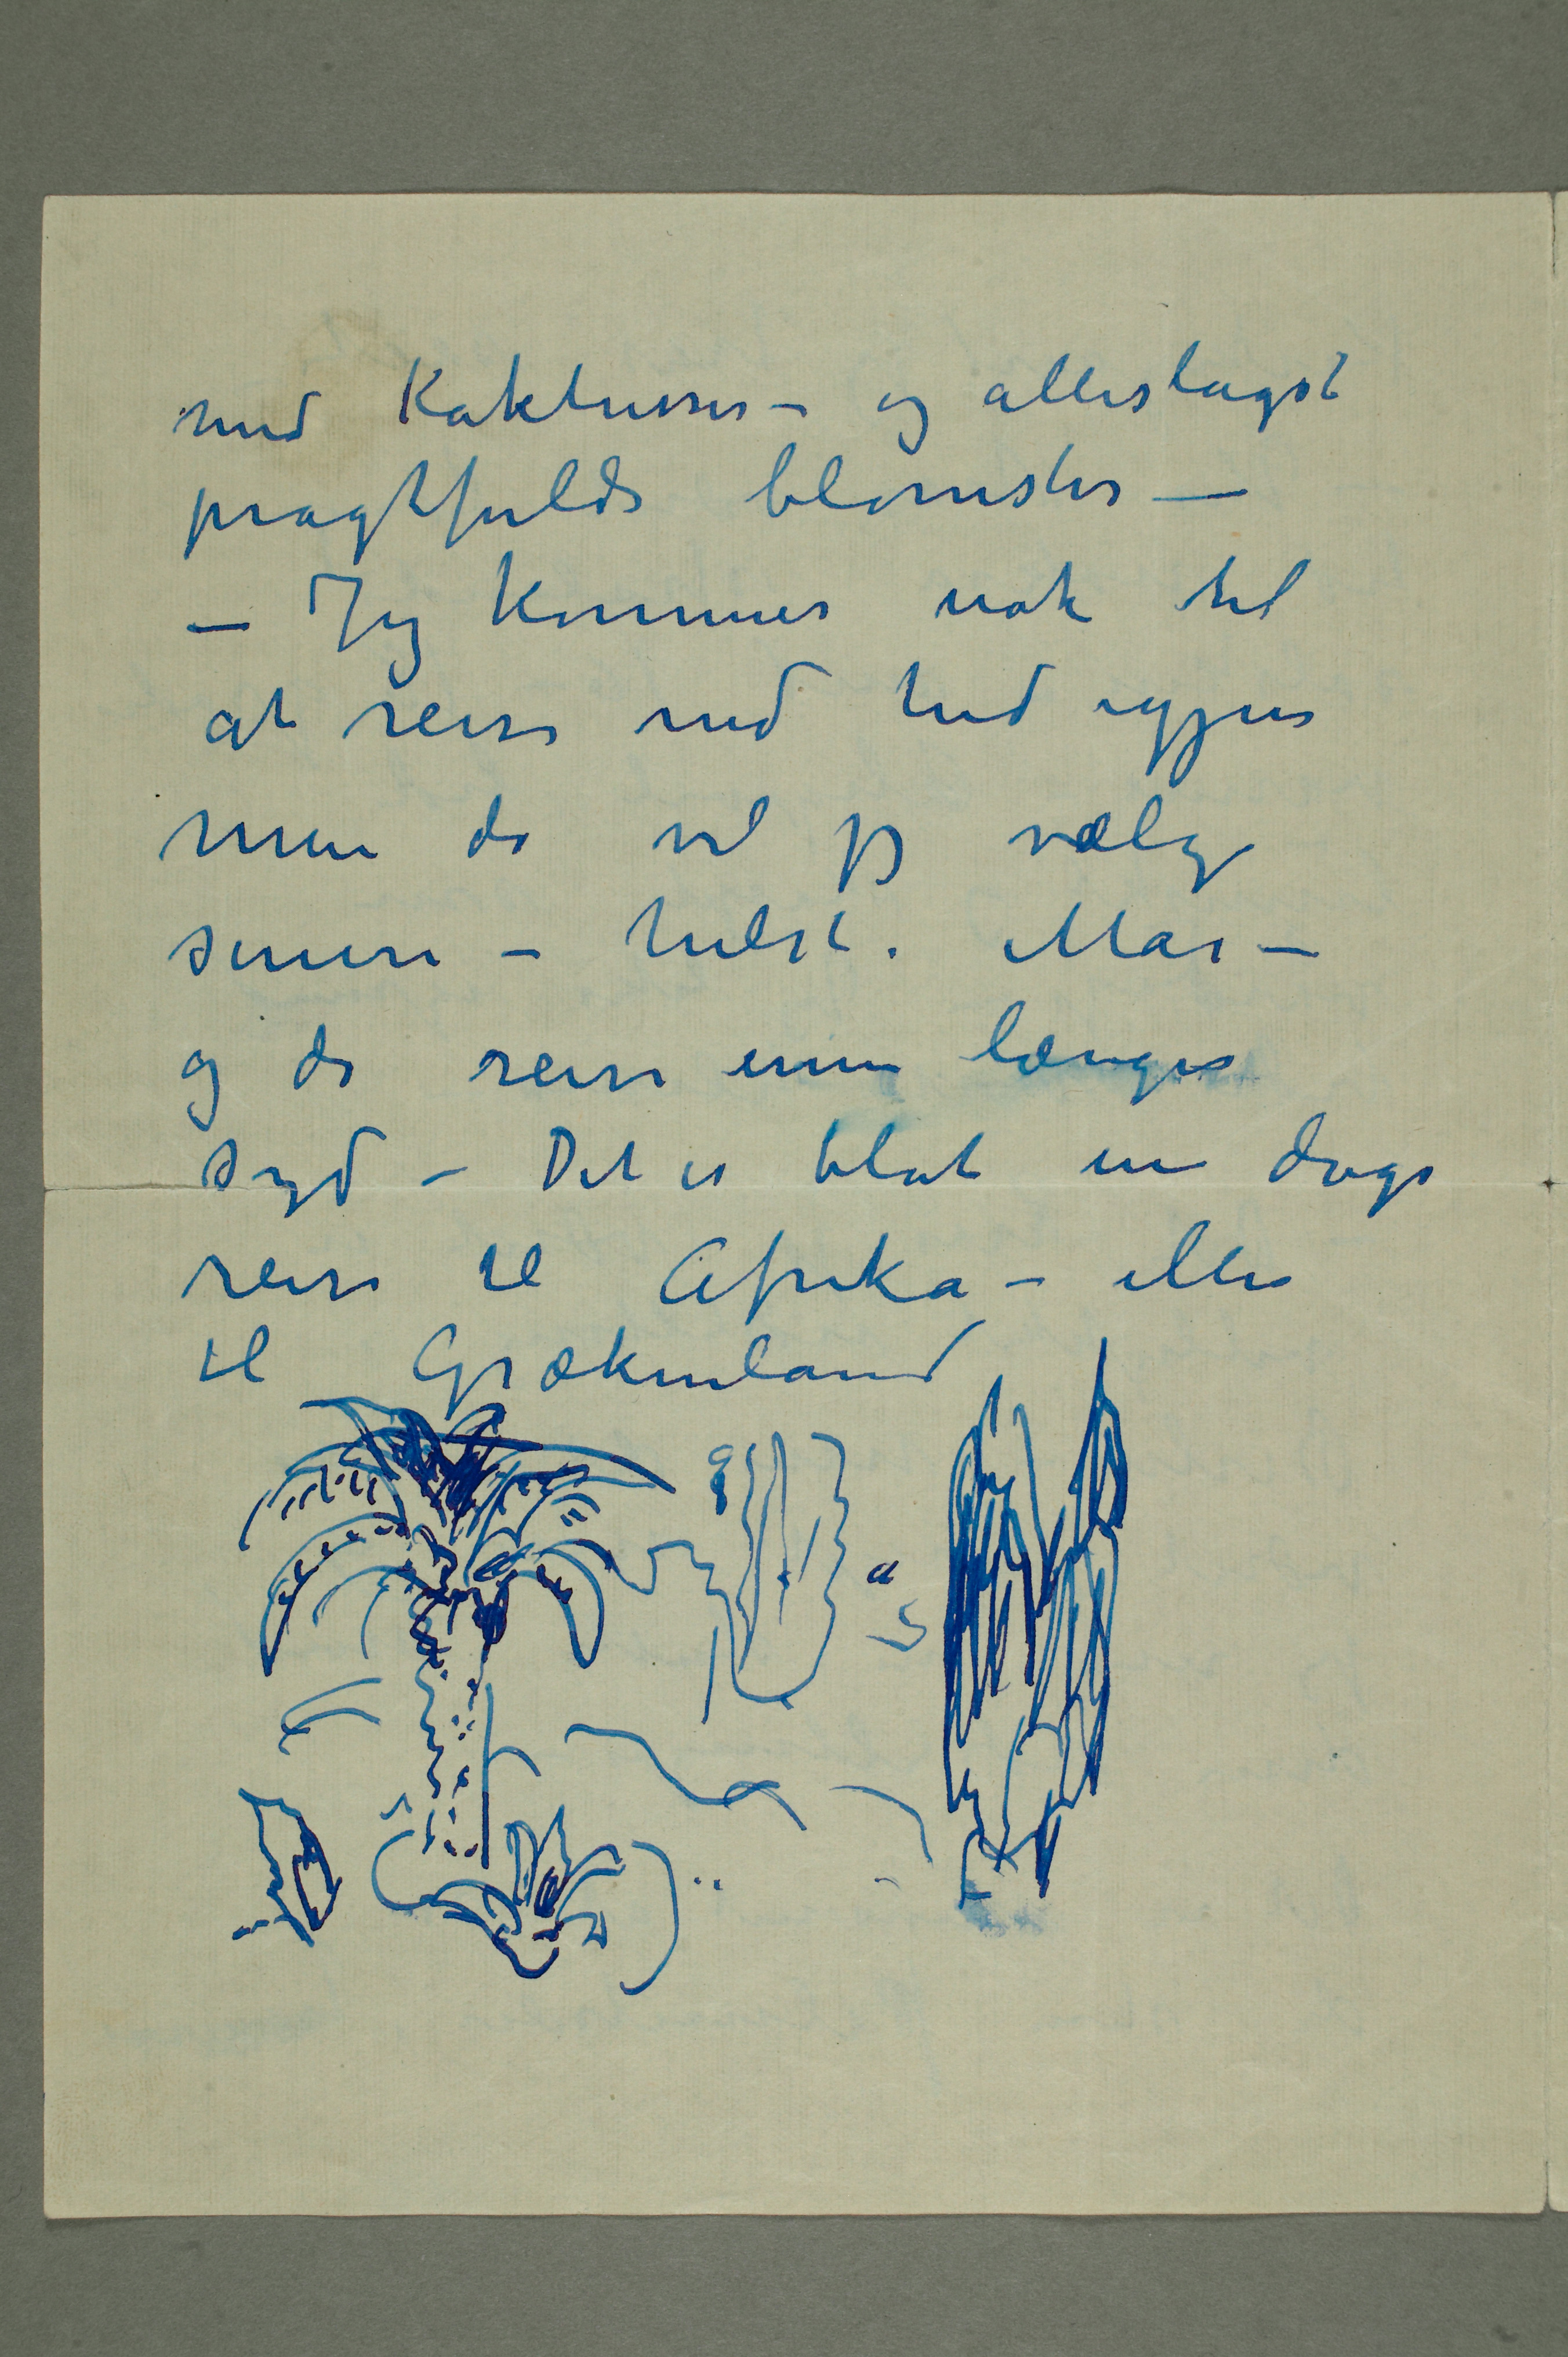 med Kaktusser – og alleslagst
pragtfulde blomster –
– Jeg kommer nok til
at reise ned hid igjen
men da vil jeg vælge
senere – helst. Mai –
og da reise ennu længer
syd – Det er blot en dags
reise til Afrika – eller
til Grækenland